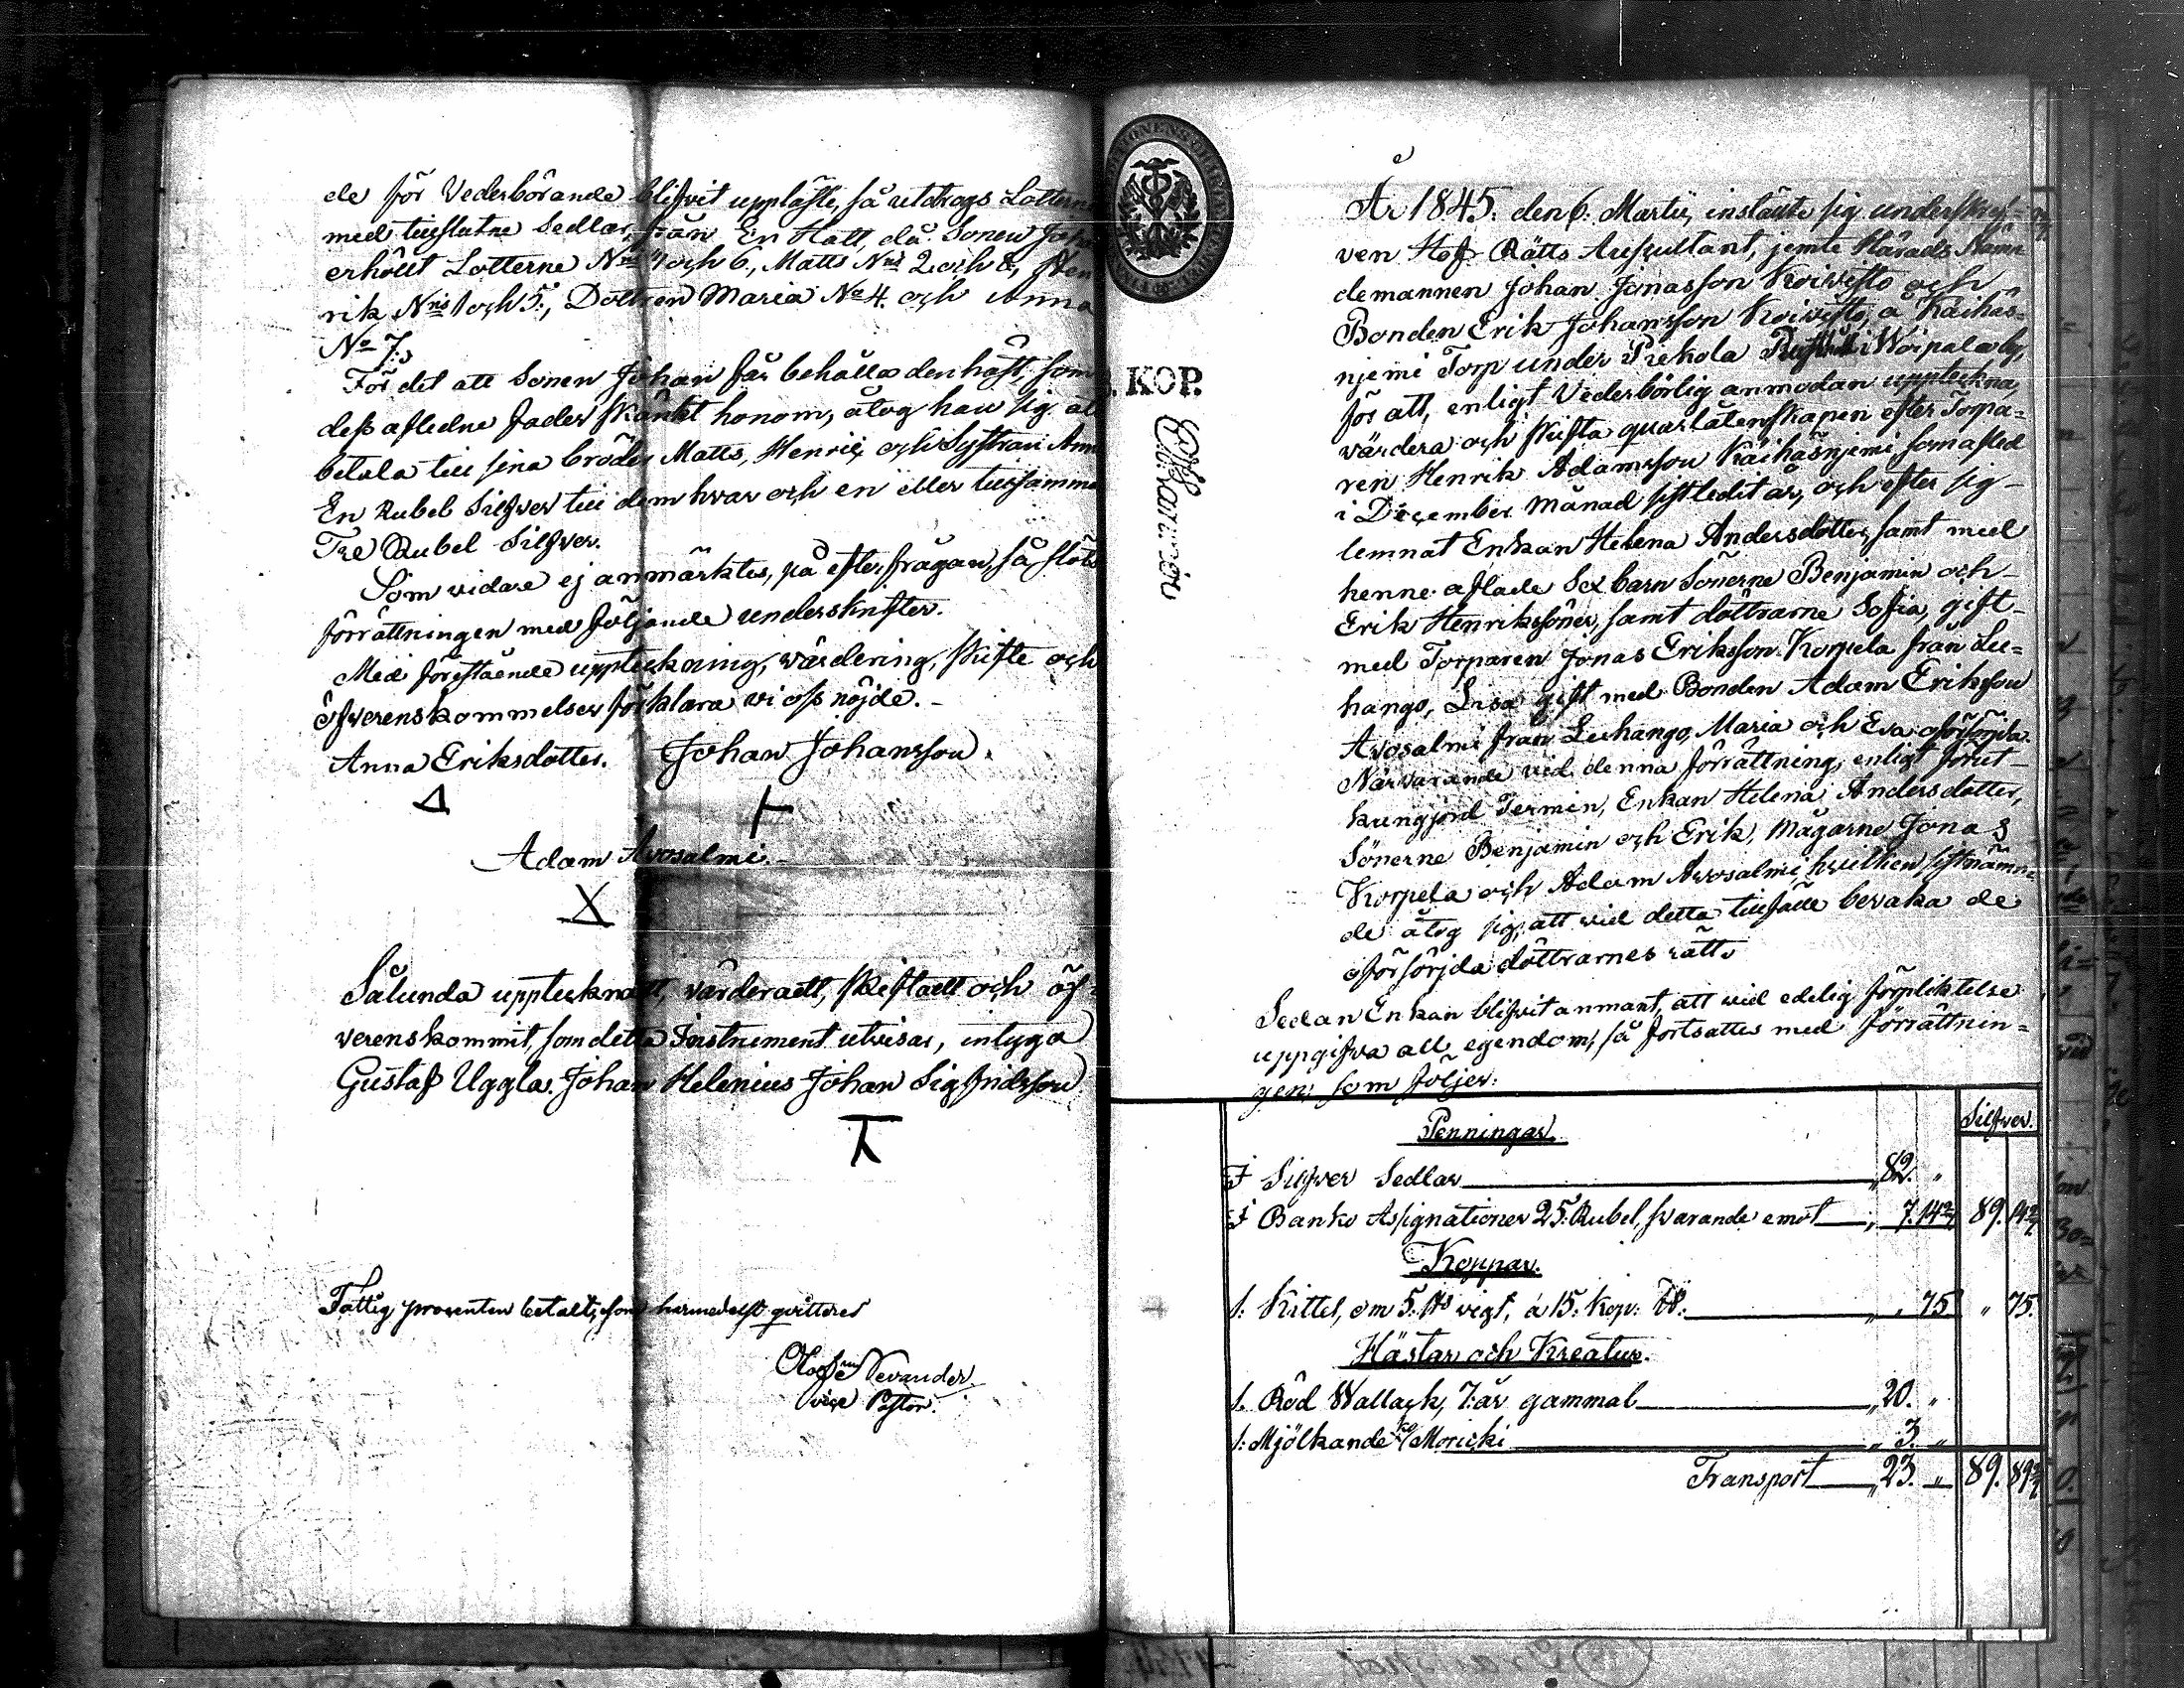 de för Vederbörande blifvit uppläste, så utdrogs Lotterne
med tillslutne Sedlar, från En Hatt, då Sonen Joh
erhöllt Lotterne Nris 3 och 6., Matts Nris 2 och 8, Hen
rik Nris 1 och 5., Dottren Maria No 4. och Anna
No 7.
För det att Sonen Johan får behålla den häst, som
dess afledne fader skänkt honom, åtog han sig at
betala till sina bröder Matts, Henric och Systran Ann
En Rubel Silfver till dem hvar och en eller tillsamma
Tre Rubel Silfver.
Som vidare ej anmärktes, på efterfrågan, så slöts
förrättningen med följande underskrifter.
Med förestående uppteckning, värdering, skifte och
öfverenskommelser förklara vi oss nöjde.
Anna Eriksdotter. Johan Johansson.
Adam Avosalmi
X
Sålunda upptecknadt, värderadt, skiftadt och öf-
verenskommit, som detta Instrument utvisar, intyga
Gustaf Uggla. Johan Helenius Johan Sigfridsson
Fattig procenten betalt, som härmedelst qvitteras
Olof Nevander
vice Pastor.
KOP.
År 1845. den 6. Martii, instälte sig underskref-
ven Hof Rätts Auscultant, jemte Härads Näm
demannen Johan Jonasson Koivisto och
Bonden Erik Johansson Koivisto, å Käihäs-
njemi Torp under Prekola i Woipala by,
för att, enligt Vederbörlig anmodan uppteckna,
värdera och skifta quarlåtenskapen efter Torpa-
ren Henrik Adamsson Käihäsnjemi som afled
i December Månad sistledit år, och efter sig
lemnat Enkan Helena Andersdotter, samt med
henne aflade Sex barn Sönerne Benjamin och
Erik Henrikssöner, samt döttrarne Sofia, gift
med Torparen Jonas Eriksson Korpela från Lu-
hango, Lisa gift med Bonden Adam Eriksson
Avosalmi från Luhango, Maria och Eva oförsörjda.
Närvarande vid denna förrättning, enligt förut
kungjord Termin, Enkan Helena Andersdotter,
Sönerne Benjamin och Erik, Mågarne Jonas
Korpela och Adam Avosalmi, hvilken sistnämn-
de åtog sig, att vid detta tillfälle bevaka de
oförsörjda döttrarnes rätt.
Sedan Enkan blifvit anmant, att vid edelig förpliktelse
uppgifva all egendom, så fortsattes med förrättnin-
gen som följer:
Silfver.
Penningar.
I Silfver Sedlar 82. "
I Banko Assignationer 25. Rubel, svarande emot 7. 14 2/7 89. 14 2/7
Koppar.
1. Kittel, om 5. ℔ vigt, à 15. Kop: ℔. " 75 " 75.
Hästar och Kreatur.
1. Röd Wallack, 7. år gammal 20. "
1. Mjölkande ko Moricki 3. "
Transport 23. " 89. 89 2/7